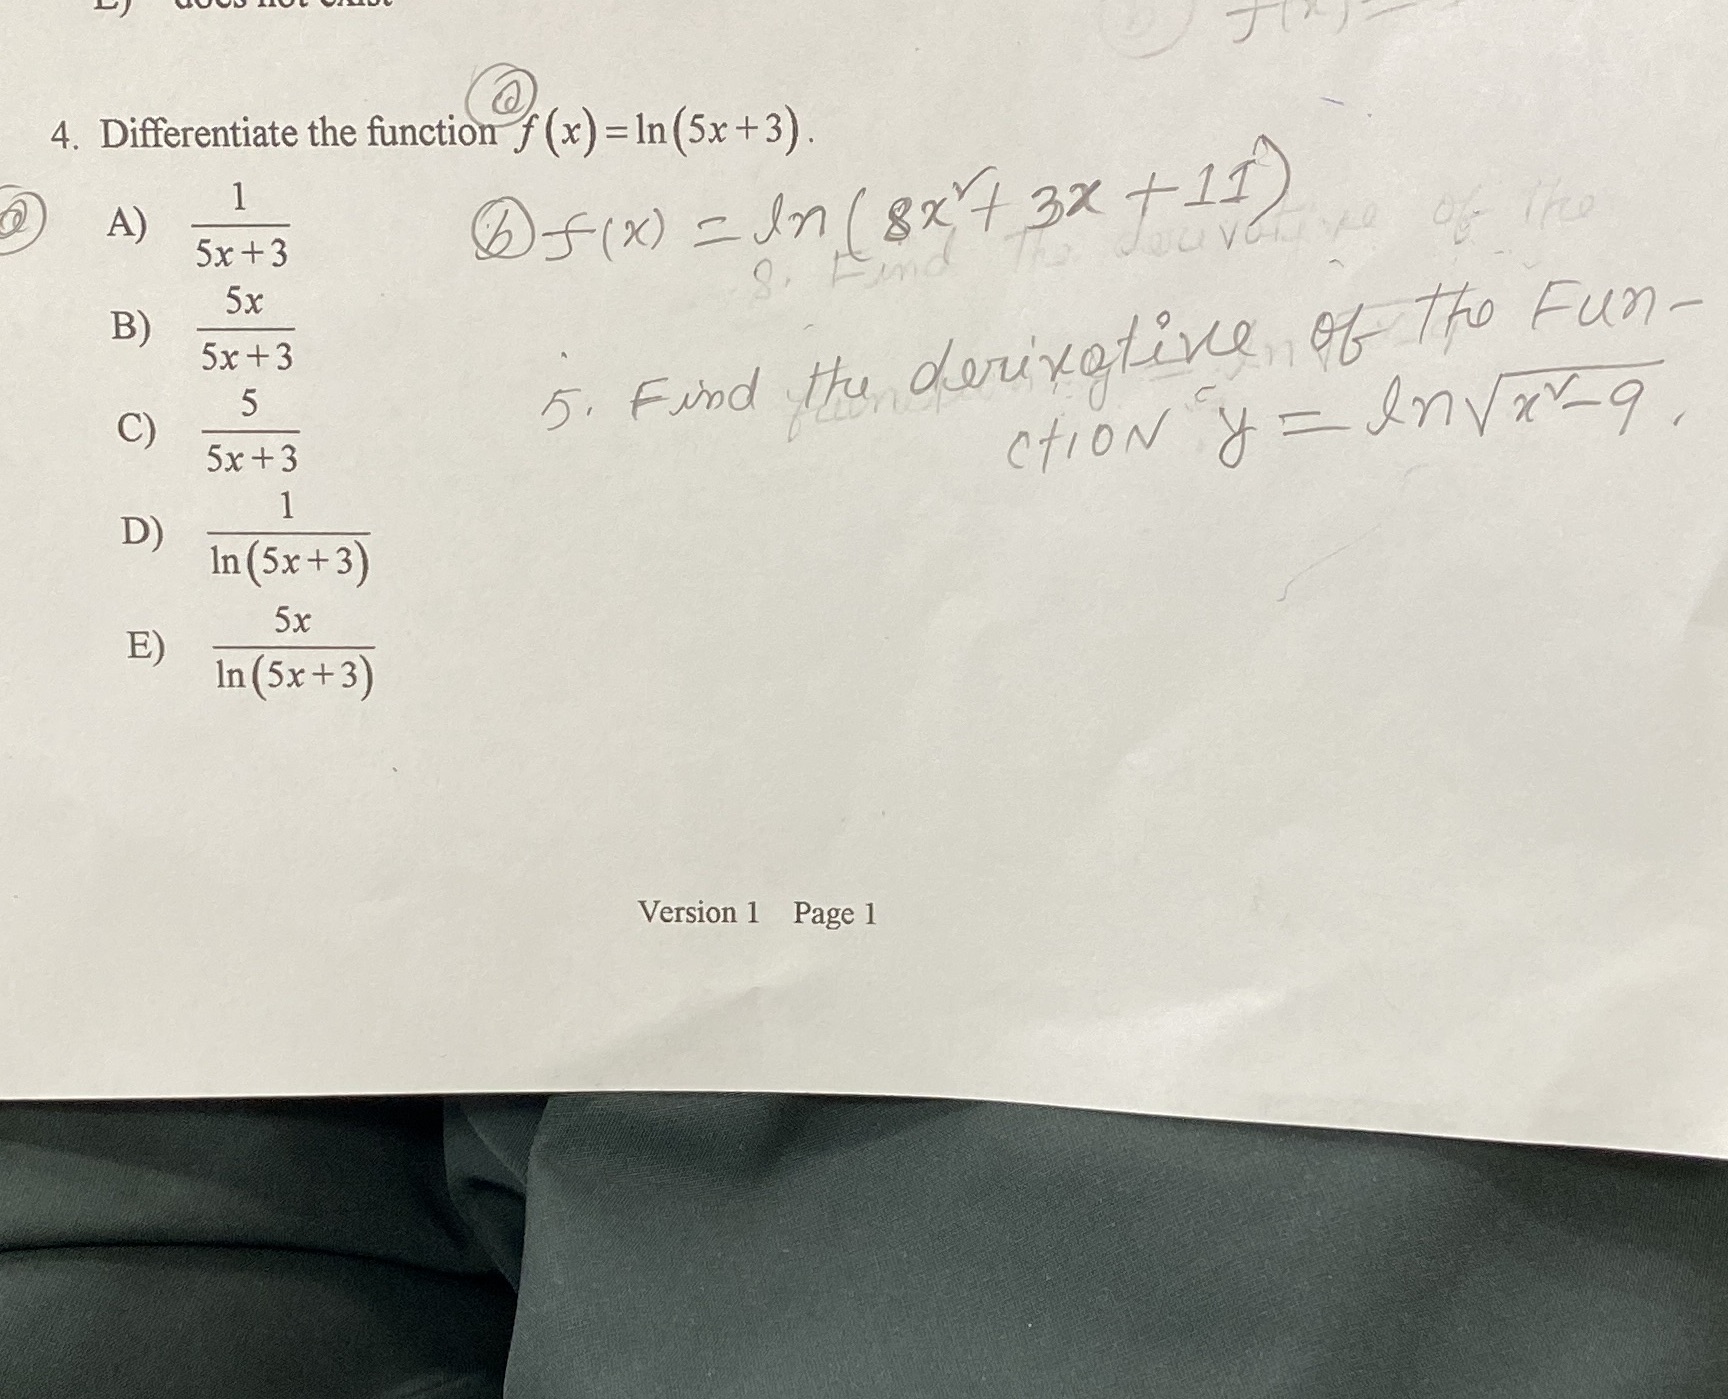 does not exist
f(x) =
4. Differentiate the function ⓐ f(x) = ln(5x+3).
ⓐ A) 1/(5x+3)
ⓑ f(x) = ln(8x²+3x+11)
B) 5x/(5x+3)
5. Find the derivative of the Fun-
ction y = ln√(x²-9).
C) 5/(5x+3)
D) 1/ln(5x+3)
E) 5x/ln(5x+3)
Version 1 Page 1